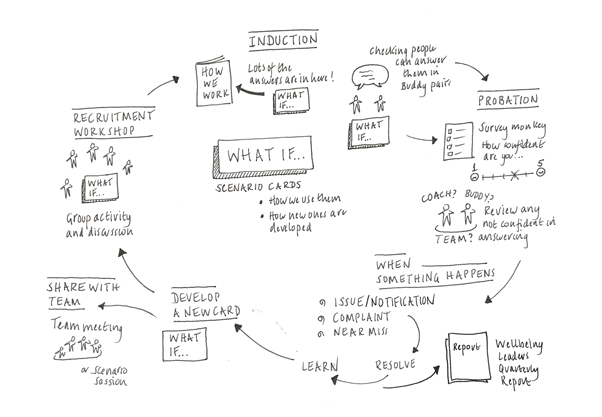 INDUCTION
HOW
WE
WORK
Lots of the
answers are in here!
WHAT
IF...
checking people
can answer
them in
Buddy pairs
WHAT
IF...
PROBATION
Survey monkey
How confident
are you...
1
5
COACH? BUDDY?
TEAM?
Review any
not confident in
answering
RECRUITMENT
WORKSHOP
WHAT
IF...
Group activity
and discussion
WHAT IF...
SCENARIO CARDS
• How we use them
• How new ones are
developed
WHEN
SOMETHING HAPPENS
ISSUE/NOTIFICATION
COMPLAINT
NEAR MISS
RESOLVE
LEARN
Report
Wellbeing
Leaders
Quarterly
Report
DEVELOP
A NEW CARD
WHAT
IF...
SHARE WITH
TEAM
Team meeting
or scenario
session